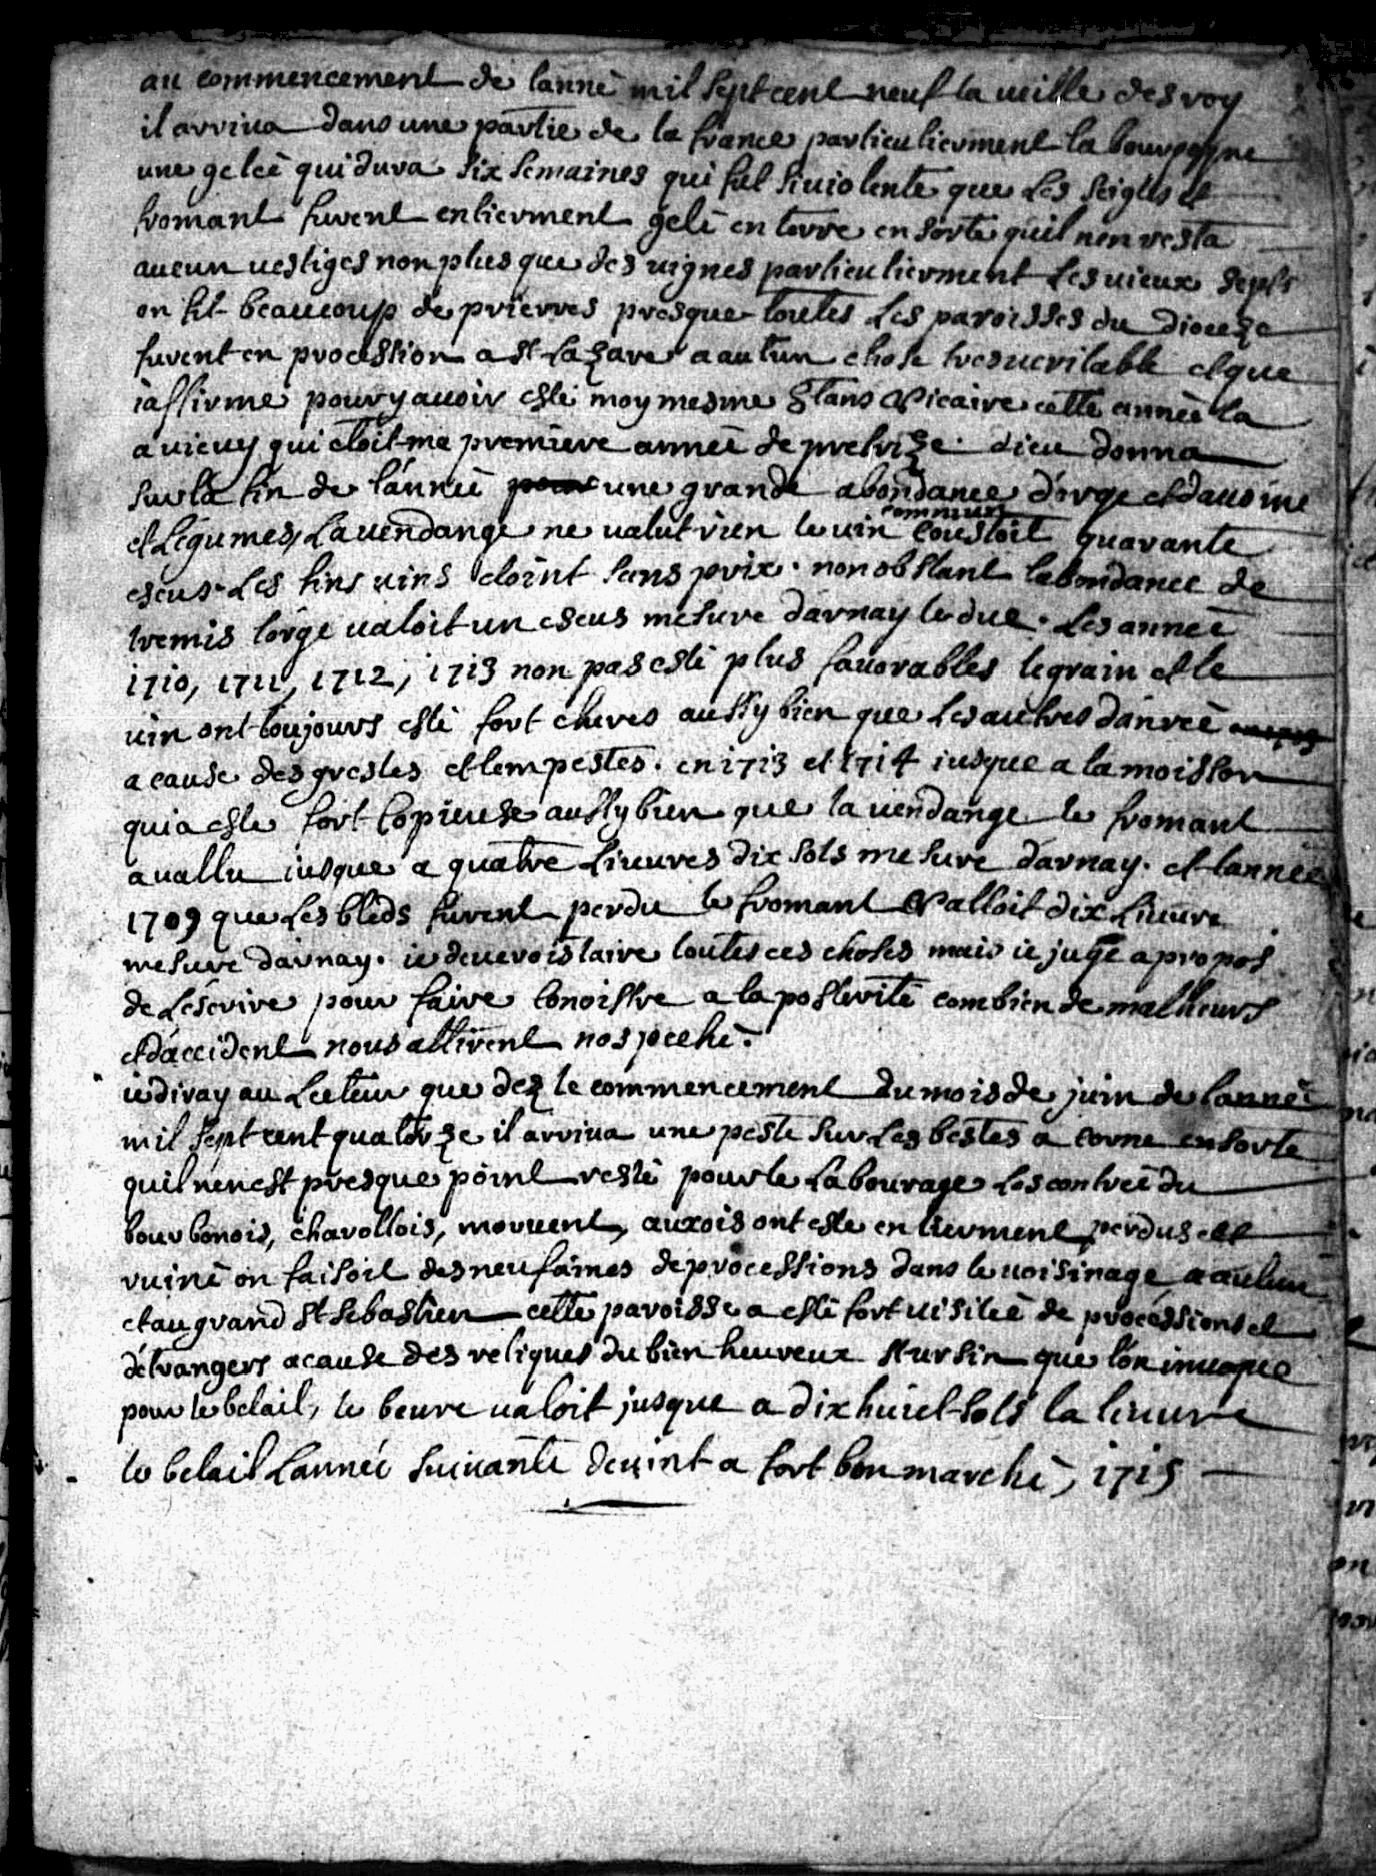 au commencement de lanné mil sept cent neuf la veille des roy
il arriva dans une partie de la france particulierment la bourgogne
une geleé qui dura six semaines qui fut si violente que les seigles et
fromant furent entierment gelé en terre en sorte quil nen resta
aucun vestiges non plus que des vignes particulierment les vieux seps
on fit beaucoup de prierres presque toutes les paroisses du diocese
furent en procession a st lazare a autun chose tres veritable et que
iaffirme pour y avoir esté moy mesme estans vicaire cette année la
a vieuy qui étoit ma premiere année de pretrize. dieu donna
sur la fin de lánneé une grande abondance dorge et davoine
et légumes, la vendange ne valut rien le vin commun coustoit quarante
escus. les fins vins etoint sans prix. non obstant labondance de
tremis lorge valoit un escus mesure darnay le duc. les anneé
1710, 1711, 1712, 1713 non pas esté plus favorables le grain et le
vin ont toujours esté fort cheres aussy bien que les autres danreé
a cause des gresles et tempestes. en 1713 et 1714 iusque a la moisson
qui a esté fort copieuse aussy bien que la vendange le fromant
a vallu iusque a quatre livvres dix sols mesure darnay. et lannée
1709 que les bleds furent perdu le fromant valloit dix livvre
mesure darnay. ie deverois taire toutes ces choses mais ie juge a propos
de lescrire pour faire conoistre a la posterité combien de malheurs
et dáccident nous attirent nos peché.
ie diray au lecteur que dez le commencement du mois de juin de lanneé
mil sept cent quatorze il arriva une peste sur les bestes a corne en sorte
quil nen est presque point resté pour le labourage les contreé du
bourbonois, charollois, morvent, auxois ont esté entierment perdus et
ruiné on faisoit des neufaines de processions dans le voisinage, a autun
et au grand st sebastien cette paroisse a esté fort visiteé de processions et
détrangers a cause des reliques du bien heureux st ursin que lon invoque
pour le betail, le beure valoit jusque a dix huict sols la livvre
le betail lanneé suivante devint a fort bon marché, 1715